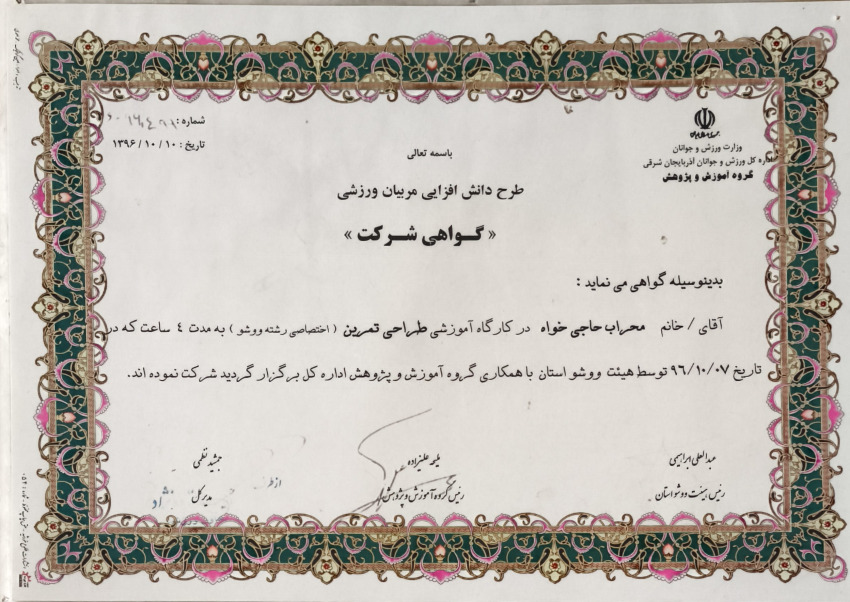 وزارت ورزش و جوانان
اداره کل ورزش و جوانان آذربایجان شرقی
گروه آموزش و پژوهش
شماره :
تاریخ : ۱۳۹۶/۱۰/۱۰
باسمه تعالی
طرح دانش افزایی مربیان ورزشی
« گـواهی شـرکت »
بدینوسیله گواهی می نماید :
آقای / خانم محراب حاجی خواه در کارگاه آموزشی طراحی تمرین ( اختصاصی رشته ووشو ) به مدت ٤ ساعت که در
تاریخ ۹۶/۱۰/۰۷ توسط هیئت ووشو استان با همکاری گروه آموزش و پژوهش اداره کل برگزار گردید شرکت نموده اند.
عبدالعلی ابراهیمی
رئیس هیئت ووشو استان
ملیحه علیزاده
رئیس گروه آموزش و پژوهش
جمشید نظمی
مدیر کل
از طرف